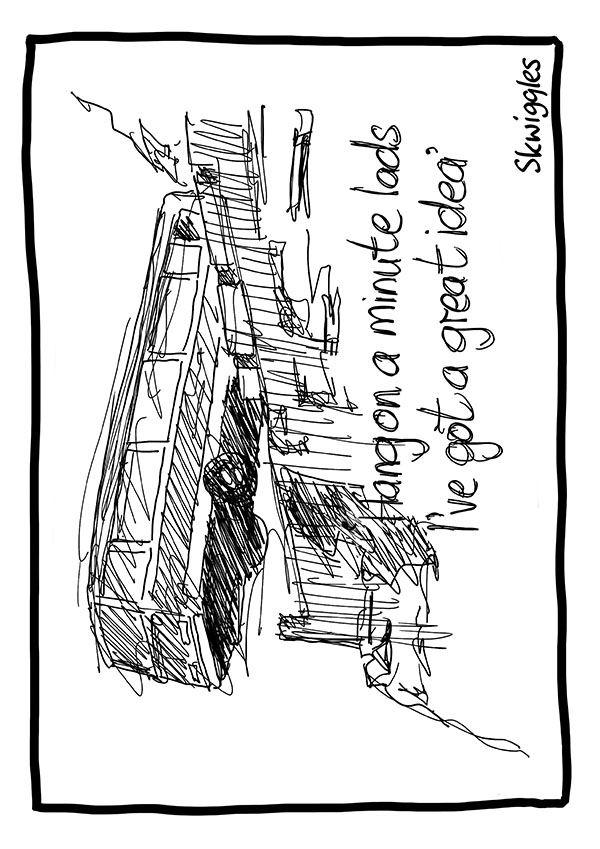 Hang on a minute lads
I've got a great idea'
Skwiggles